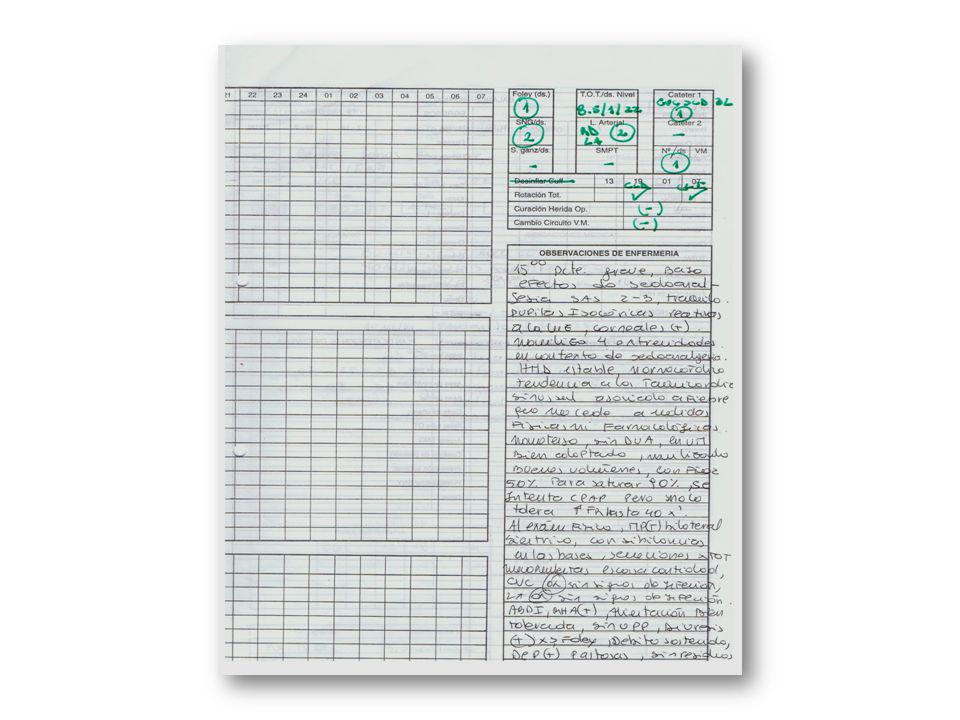 21 22 23 24 01 02 03 04 05 06 07
Foley (ds.) T.O.T./ds. Nivel Cateter 1
1 8.5/1/22 1
SNG/ds. L. Arterial Cateter 2
2 2 -
S. ganz/ds. SMPT Nº /ds VM
- - 1
Desinflar Cuff 13 19 01 07
Rotación Tot.
Curación Herida Op. (-)
Cambio Circuito V.M. (-)
OBSERVACIONES DE ENFERMERIA
15 00 Pcte. grave, Bajo
efectos de sedoanal-
gesia SAS 2-3, tranquilo.
pupilas Isocóricas reactivas
a la luz, corneales (+).
moviliza 4 extremidades
en contexto de sedoanalgesia.
HMD estable, normocardico
tendencia a la Taquicardia
sinusal asociado a Fiebre
que no cede a medidas
Fisicas ni Farmacológicas.
normotenso, sin DVA, en VM
Bien adaptado, movilizando
Buenos volumenes, con FiO2
50% Para saturar 90%, se
Intenta CPAP Pero no lo
tolera ↑ FR hasta 40 x'.
Al exámen Fisico, MP(+) bilateral
simetrico, con sibilancias
en las bases, secreciones x TOT
escasa cantidad,
CVC sin signos de infección,
LA sin signos de infección.
ABDI, RHA(+), Alimentación Bien
tolerada, sin UPP, Diuresis
(+) x Foley, Debito sostenido,
Dep(+) Pastosas, sin residuos